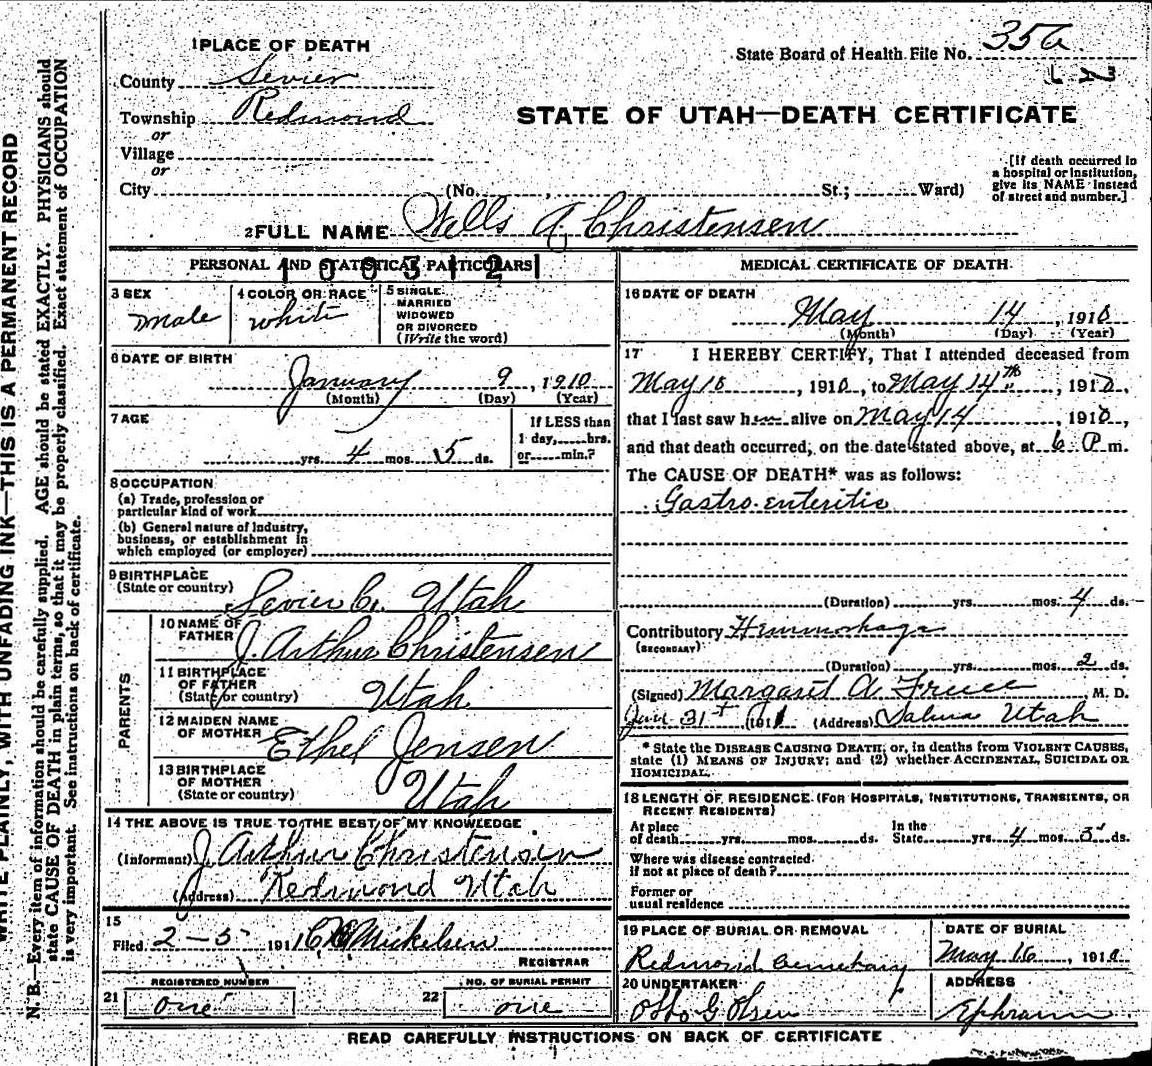 1 PLACE OF DEATH
State Board of Health File No. 356
County Sevier
Township Redmond
or
Village
or
City (No. , St.; Ward)
STATE OF UTAH—DEATH CERTIFICATE
[If death occurred in
a hospital or institution,
give its NAME instead
of street and number.]
2 FULL NAME Wells A Christensen
PERSONAL AND STATISTICAL PARTICULARS
1003121
3 SEX
male
4 COLOR OR RACE
white
5 SINGLE
MARRIED
WIDOWED
OR DIVORCED
(Write the word)
6 DATE OF BIRTH
January 9, 1910
(Month) (Day) (Year)
7 AGE
yrs. 4 mos. 5 ds.
If LESS than
1 day, hrs.
or min.?
8 OCCUPATION
(a) Trade, profession or
particular kind of work
(b) General nature of Industry,
business, or establishment in
which employed (or employer)
9 BIRTHPLACE
(State or country) Sevier Co. Utah
PARENTS
10 NAME OF
FATHER J. Arthur Christensen
11 BIRTHPLACE
OF FATHER
(State or country) Utah
12 MAIDEN NAME
OF MOTHER Ethel Jensen
13 BIRTHPLACE
OF MOTHER
(State or country) Utah
14 THE ABOVE IS TRUE TO THE BEST OF MY KNOWLEDGE
(Informant) J. Arthur Christensen
(Address) Redmond Utah
15
Filed 2-5- 1911 Mickelsen
REGISTRAR
21 REGISTERED NUMBER
one
22 NO. OF BURIAL PERMIT
one
MEDICAL CERTIFICATE OF DEATH
16 DATE OF DEATH
May 14, 1910
(Month) (Day) (Year)
17 I HEREBY CERTIFY, That I attended deceased from
May 10, 1910, to May 14th, 1910,
that I last saw him alive on May 14 1910,
and that death occurred, on the date stated above, at 6 P m.
The CAUSE OF DEATH* was as follows:
Gastro-enteritis
(Duration) yrs. mos. 4 ds.
Contributory Hemmorhage
(SECONDARY)
(Duration) yrs. mos. 2 ds.
(Signed) Margaret A. Freece, M. D.
Jan 31st 1911 (Address) Salina Utah
* State the DISEASE CAUSING DEATH; or, in deaths from VIOLENT CAUSES,
state (1) MEANS OF INJURY; and (2) whether ACCIDENTAL, SUICIDAL OR
HOMICIDAL.
18 LENGTH OF RESIDENCE (FOR HOSPITALS, INSTITUTIONS, TRANSIENTS, OR
RECENT RESIDENTS)
At place
of death yrs. mos. ds.
In the
State yrs. 4 mos. 5 ds.
Where was disease contracted
if not at place of death?
Former or
usual residence
19 PLACE OF BURIAL OR REMOVAL
Redmond Cemetary
DATE OF BURIAL
May 16, 1910
20 UNDERTAKER
Otto G Olsen
ADDRESS
Ephraim
READ CAREFULLY INSTRUCTIONS ON BACK OF CERTIFICATE
WRITE PLAINLY, WITH UNFADING INK—THIS IS A PERMANENT RECORD
N. B.—Every item of information should be carefully supplied. AGE should be stated EXACTLY. PHYSICIANS should
state CAUSE OF DEATH in plain terms, so that it may be properly classified. Exact statement of OCCUPATION
is very important. See instructions on back of certificate.